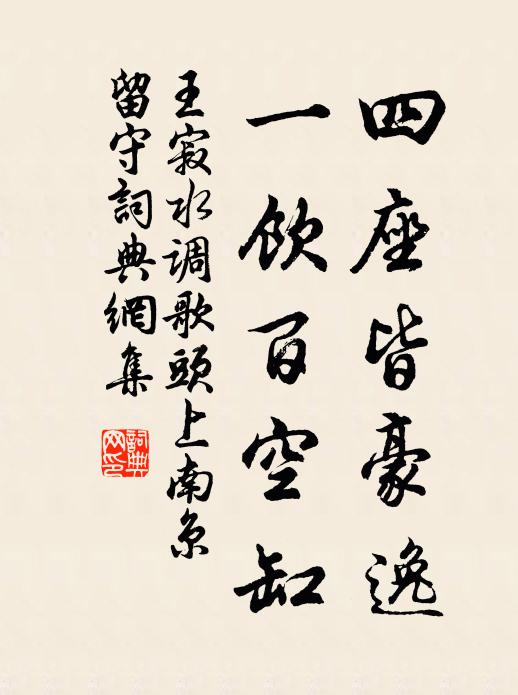 四座皆豪逸
一饮百空缸
王寂水调歌頭上南京
留守詞典網集
詞典
网印